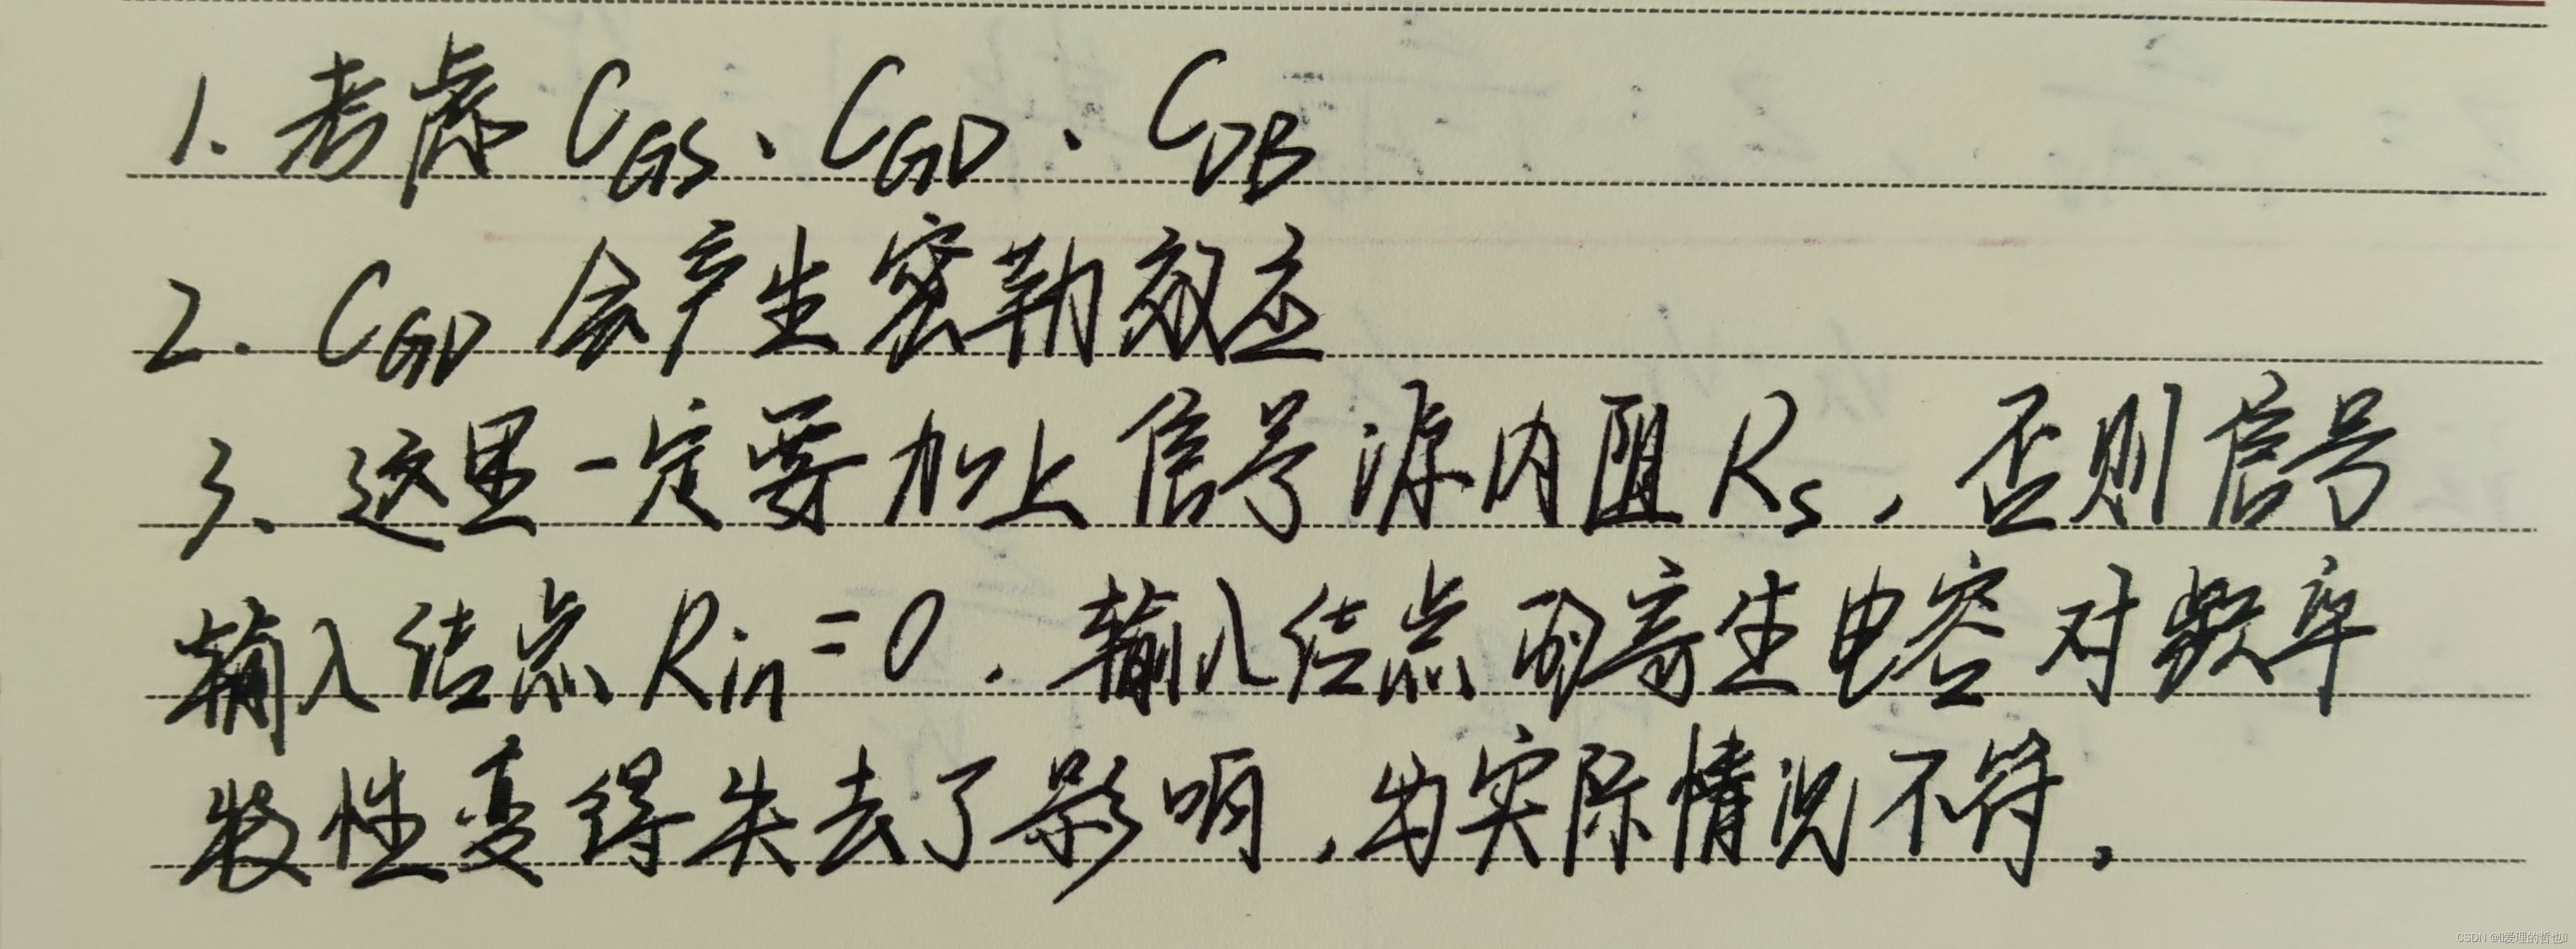 1. 考虑 C_GS、C_GD、C_DB
2. C_GD 会产生密勒效应
3. 这里一定要加上信号源内阻 R_S，否则信号
输入结点 R_in = 0，输入结点的寄生电容对频率
特性变得失去了影响，与实际情况不符。
CSDN @爱理的哲也